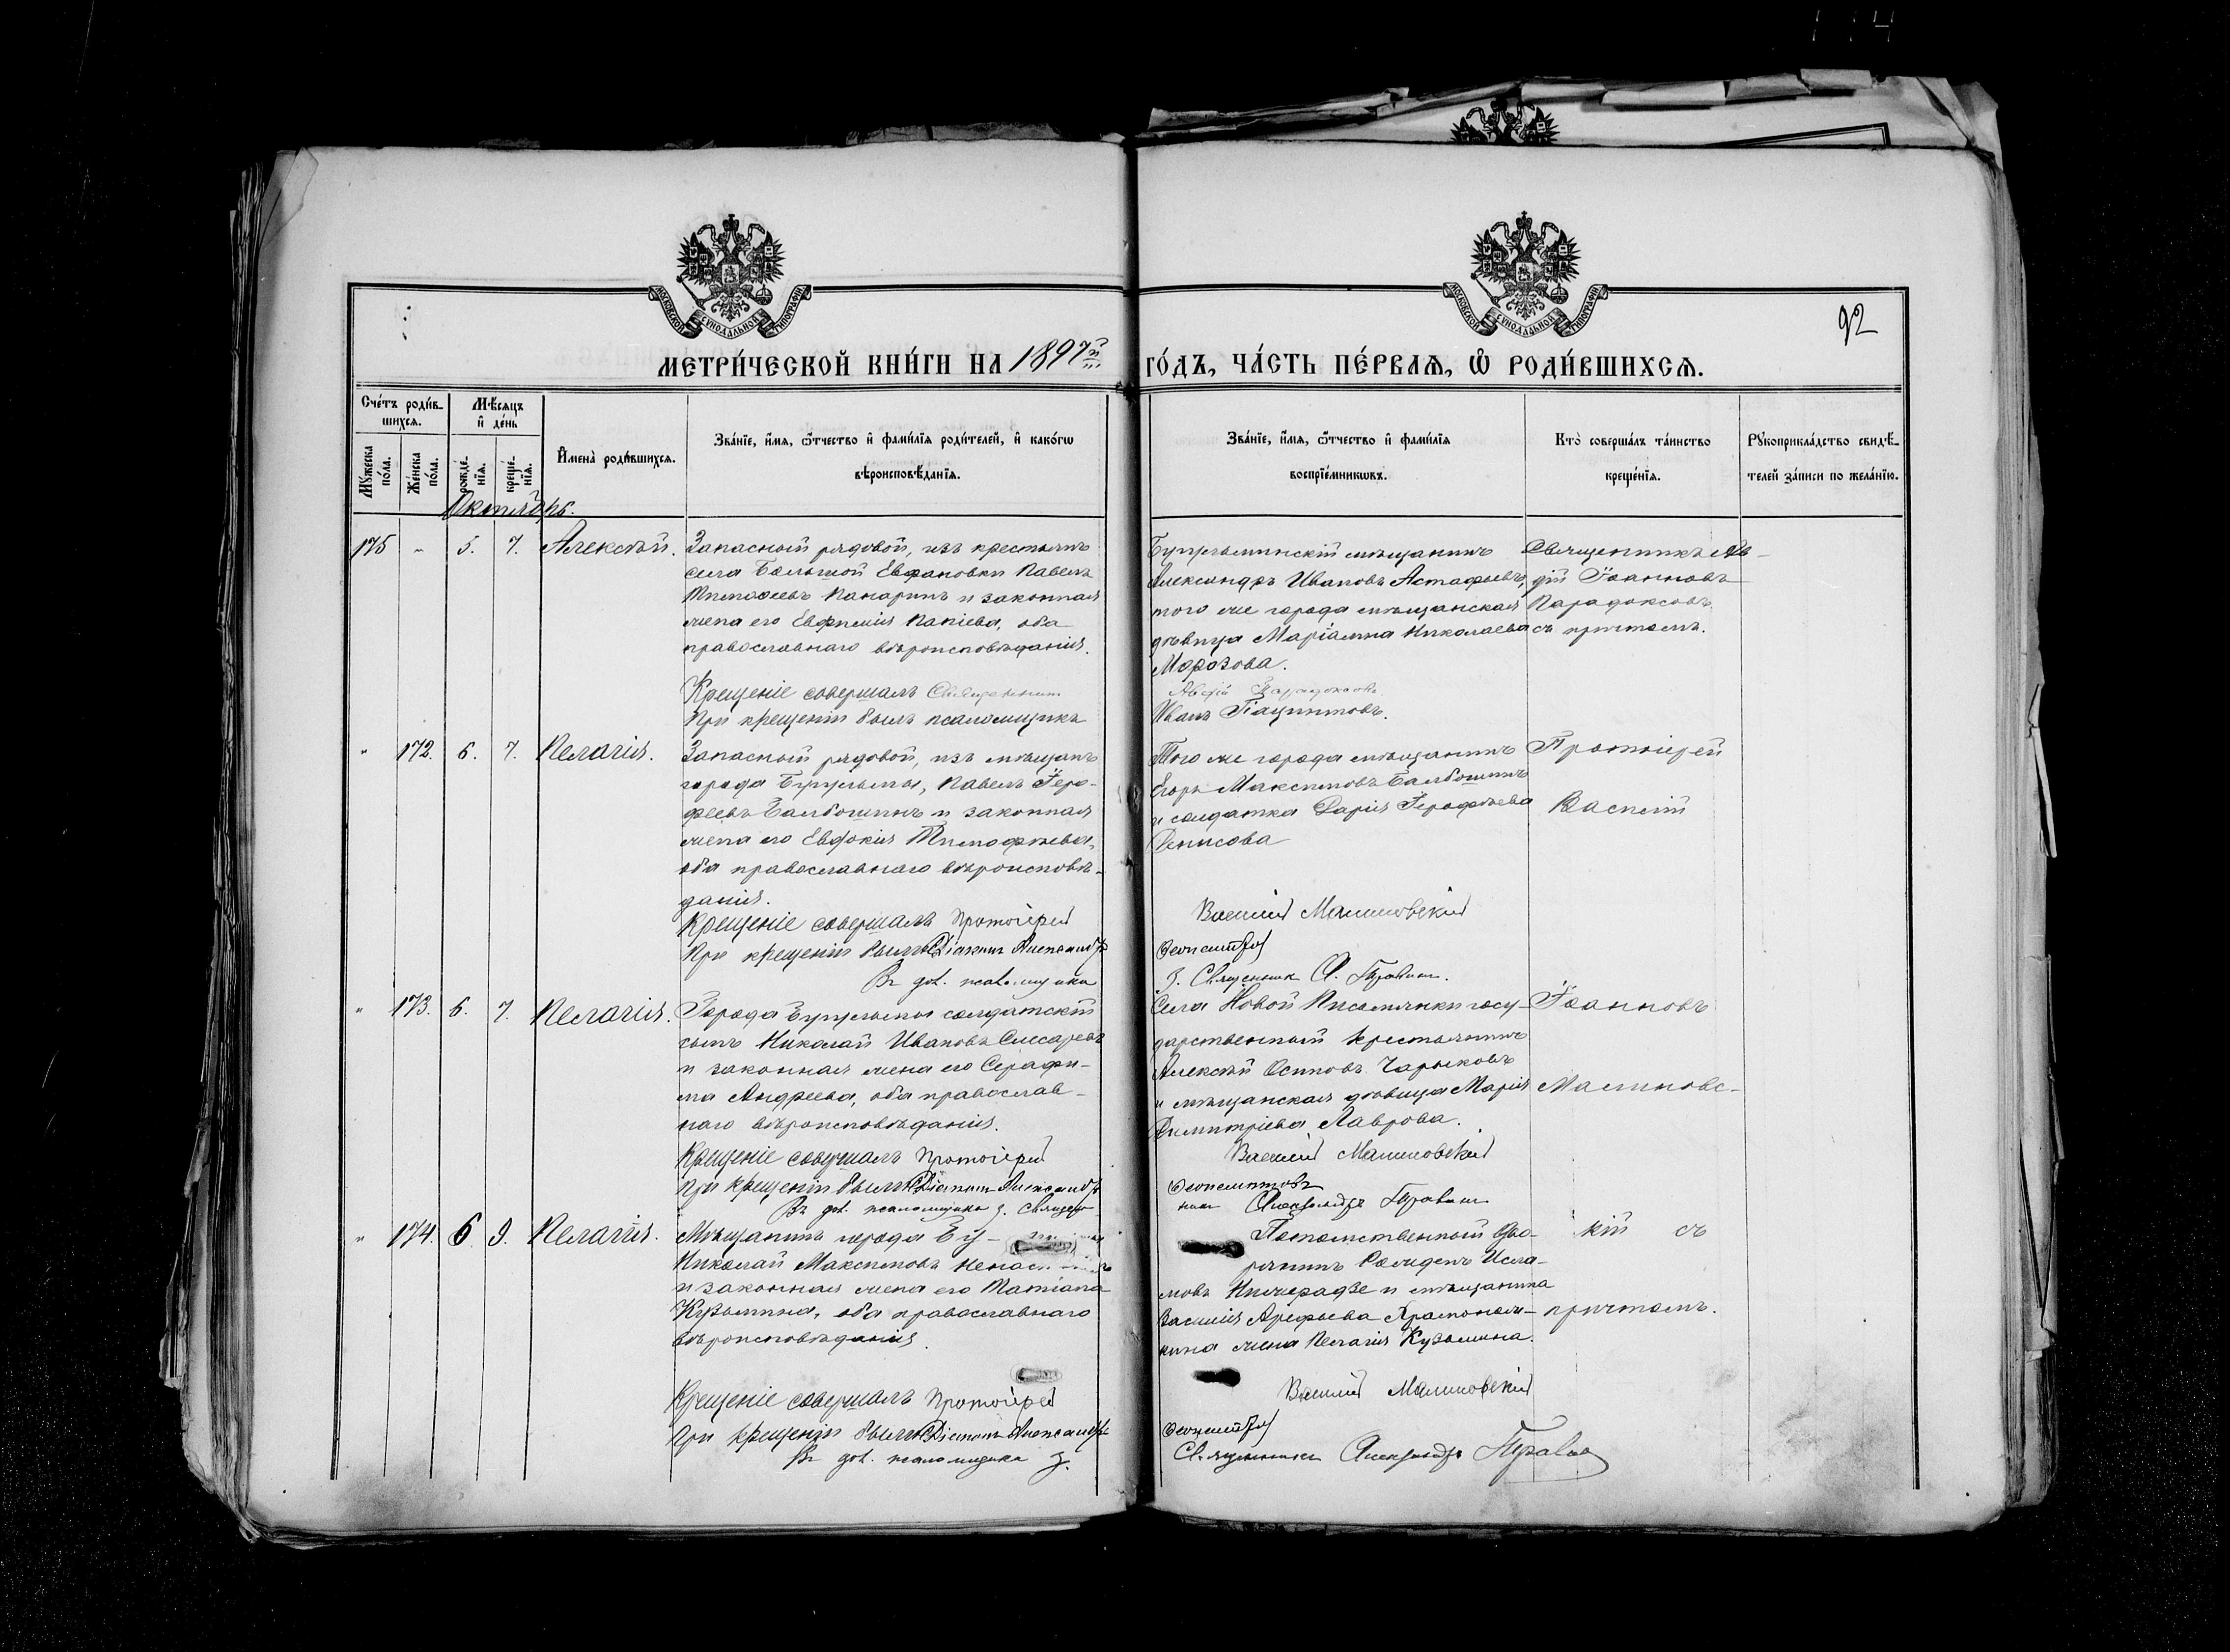 МЕТРИ́ЧЕСКОЙ КНИ́ГИ НА 1897й ГО́ДЪ, ЧА́СТЬ ПЕ́РВАѦ, Ѡ РОДИ́ВШИХСѦ.
92
МОСКОВСКОЙ СѴНОДАЛЬНОЙ ТИПОГРАФІИ
МОСКОВСКОЙ СѴНОДАЛЬНОЙ ТИПОГРАФІИ
Сче́тъ роди́в-
шихсѧ.
Мѣ́сяцъ
и де́нь
Мꙋ́жеска по́ла.
Же́нска по́ла.
рожде́-нїѧ.
креще́-нїѧ.
Имена̀ роди́вшихсѧ.
Зва́нїе, и́мѧ, ѻ҆́тчество и фами́лїѧ роди́телей, и како́гѡ
вѣроисповѣ́данїѧ.
Зва́нїе, и́мѧ, ѻ҆́тчество и фами́лїѧ
воспрїе́мникѡвъ.
Кто̀ соверша́лъ та́инство
креще́нїѧ.
Рꙋкоприкла́дство свидѣ́-
телей за́писи по жела́нїю.
Октябрь.
175 " 5. 7. Алексѣй.
Запасный рядовой, изъ крестьянъ
села Большой Евфановки Павелъ
Тимофеевъ Панаринъ и законная
жена его Евфимія Папіева, оба
православнаго вѣроисповѣданія.
Крещеніе совершалъ Священникъ
При крещеніи былъ псаломщикъ
Бугульминскій мѣщанинъ
Александръ Ивановъ Астафьевъ,
того же города мѣщанская
дѣвица Маріамна Николаева
Морозова.
Авдій Парадоксовъ.
Иванъ Гіацинтовъ.
Священникъ Ав-
дій Іоанновъ
Парадоксовъ
съ причтомъ.
" 172. 6. 7. Пелагія.
Запасный рядовой, изъ мѣщанъ
города Бугульмы, Павелъ Іеро-
феевъ Балбошинъ и законная
жена его Евдокія Тимофѣева,
оба православнаго вѣроисповѣ-
данія.
Крещеніе совершалъ Протоіерей
При крещеніи былъ Діаконъ Александръ
Въ дол. псаломщика
Того же города мѣщанинъ
Егоръ Максимовъ Балбошинъ
и солдатка Дарія Іерофѣева
Денисова
Василій Малиновскій
Ѳеопемптовъ
З. Священник А. Травин.
Протоіерей
Василій
" 173. 6. 7. Пелагія.
Города Бугульмы солдатскій
сынъ Николай Ивановъ Слесаревъ
и законная жена его Серафи-
ма Андреева, оба православ-
наго вѣроисповѣданія.
Крещеніе совершалъ Протоіерей
При крещеніи былъ Діаконъ Александръ
Въ дол. псаломщика з. Священ
Села Новой Письмянки госу-
дарственный крестьянинъ
Алексѣй Осиповъ Чарыковъ
и мѣщанская дѣвица Марія
Димитріева Лаврова.
Василій Малиновскій
Ѳеопемптовъ
ник Александръ Травин
Іоанновъ
Малиновс-
" 174. 6 9. Пелагія.
Мѣщанинъ города Бу-
Николай Максимовъ
и законная жена его Татіана
Кузьмина, оба православнаго
вѣроисповѣданія.
Крещеніе совершалъ Протоіерей
При крещеніи былъ Діаконъ Александръ
Въ дол. псаломщика З.
Потомственный дво-
рянинъ Исла-
мовъ и мѣщанина
Василія Арефьева
жена Пелагія Кузьмина.
Василій Малиновскій
Ѳеопемптовъ
Священникъ Александръ Травин
кій съ
причтомъ.